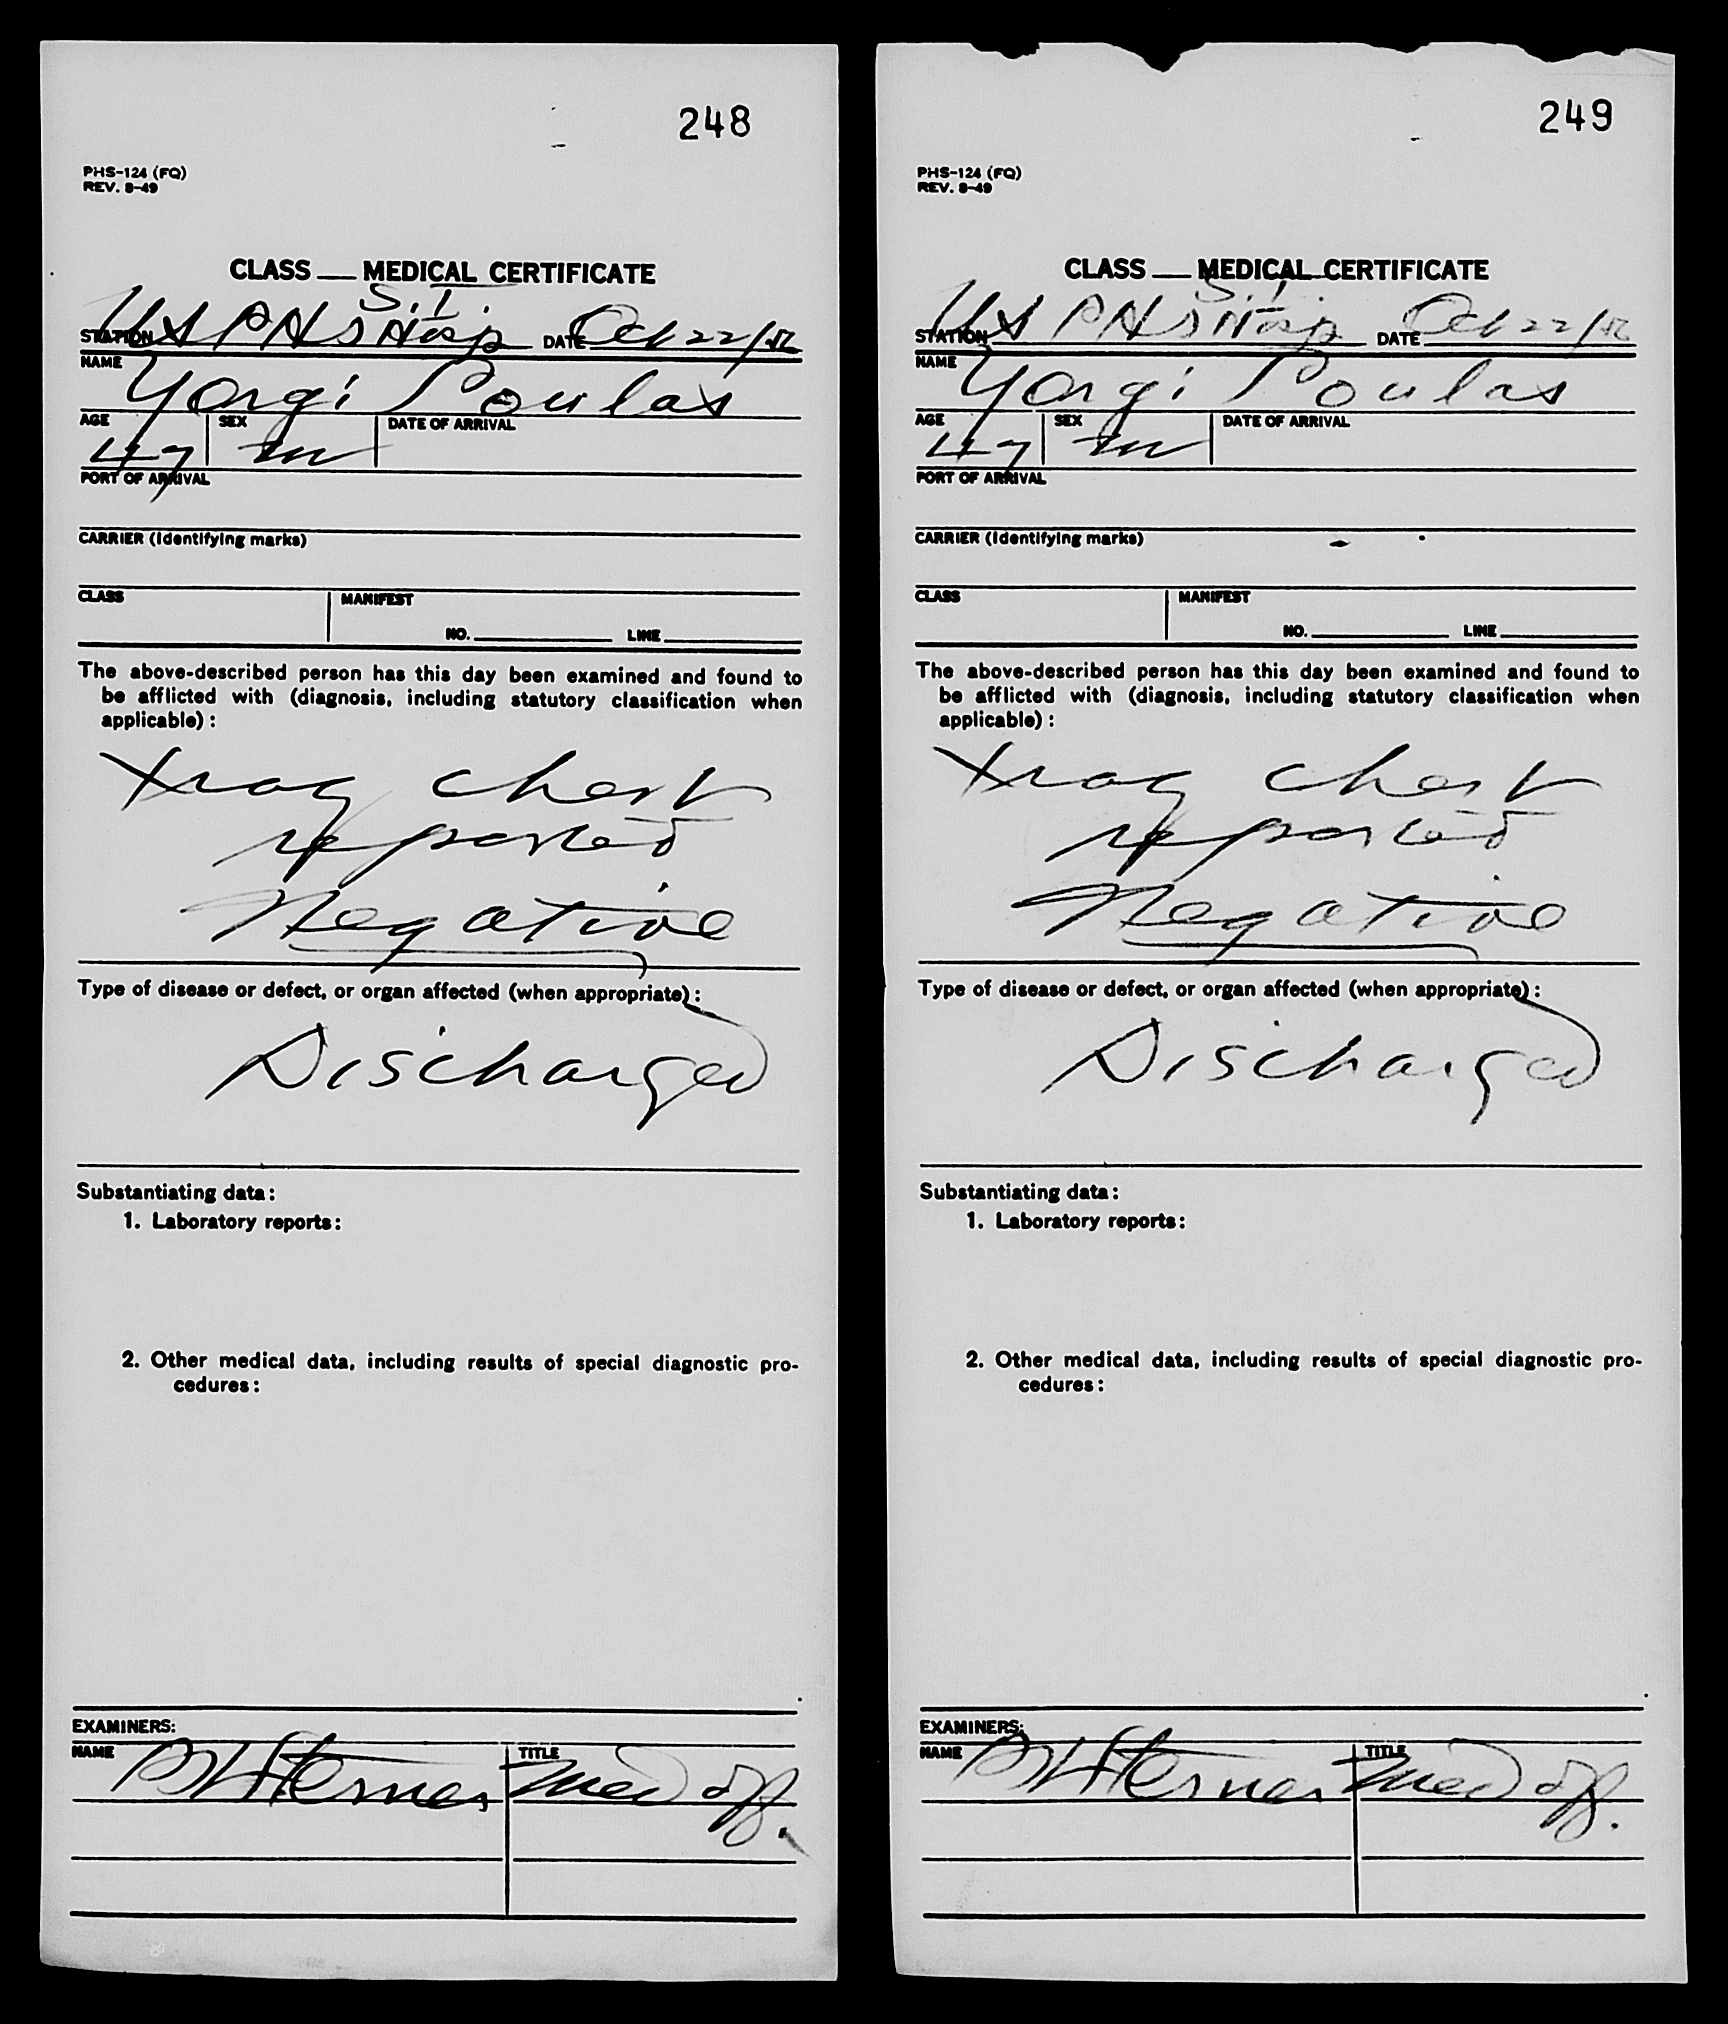 248
PHS-124 (FQ)
REV. 8-49
CLASS ___ MEDICAL CERTIFICATE
S.I.
STATION US PHS Hosp DATE Oct 22/52
NAME
Yorgi Poulas
AGE SEX DATE OF ARRIVAL
47 m
PORT OF ARRIVAL
CARRIER (Identifying marks)
CLASS MANIFEST
NO. ______ LINE ______
The above-described person has this day been examined and found to
be afflicted with (diagnosis, including statutory classification when
applicable):
Xray chest
reported
Negative
Type of disease or defect, or organ affected (when appropriate):
Discharged
Substantiating data:
1. Laboratory reports:
2. Other medical data, including results of special diagnostic pro-
cedures:
EXAMINERS:
NAME TITLE
Med off.
249
PHS-124 (FQ)
REV. 8-49
CLASS ___ MEDICAL CERTIFICATE
S.I.
STATION US PHS Hosp DATE Oct 22/52
NAME
Yorgi Poulas
AGE SEX DATE OF ARRIVAL
47 m
PORT OF ARRIVAL
CARRIER (Identifying marks)
CLASS MANIFEST
NO. ______ LINE ______
The above-described person has this day been examined and found to
be afflicted with (diagnosis, including statutory classification when
applicable):
Xray chest
reported
Negative
Type of disease or defect, or organ affected (when appropriate):
Discharged
Substantiating data:
1. Laboratory reports:
2. Other medical data, including results of special diagnostic pro-
cedures:
EXAMINERS:
NAME TITLE
Med off.